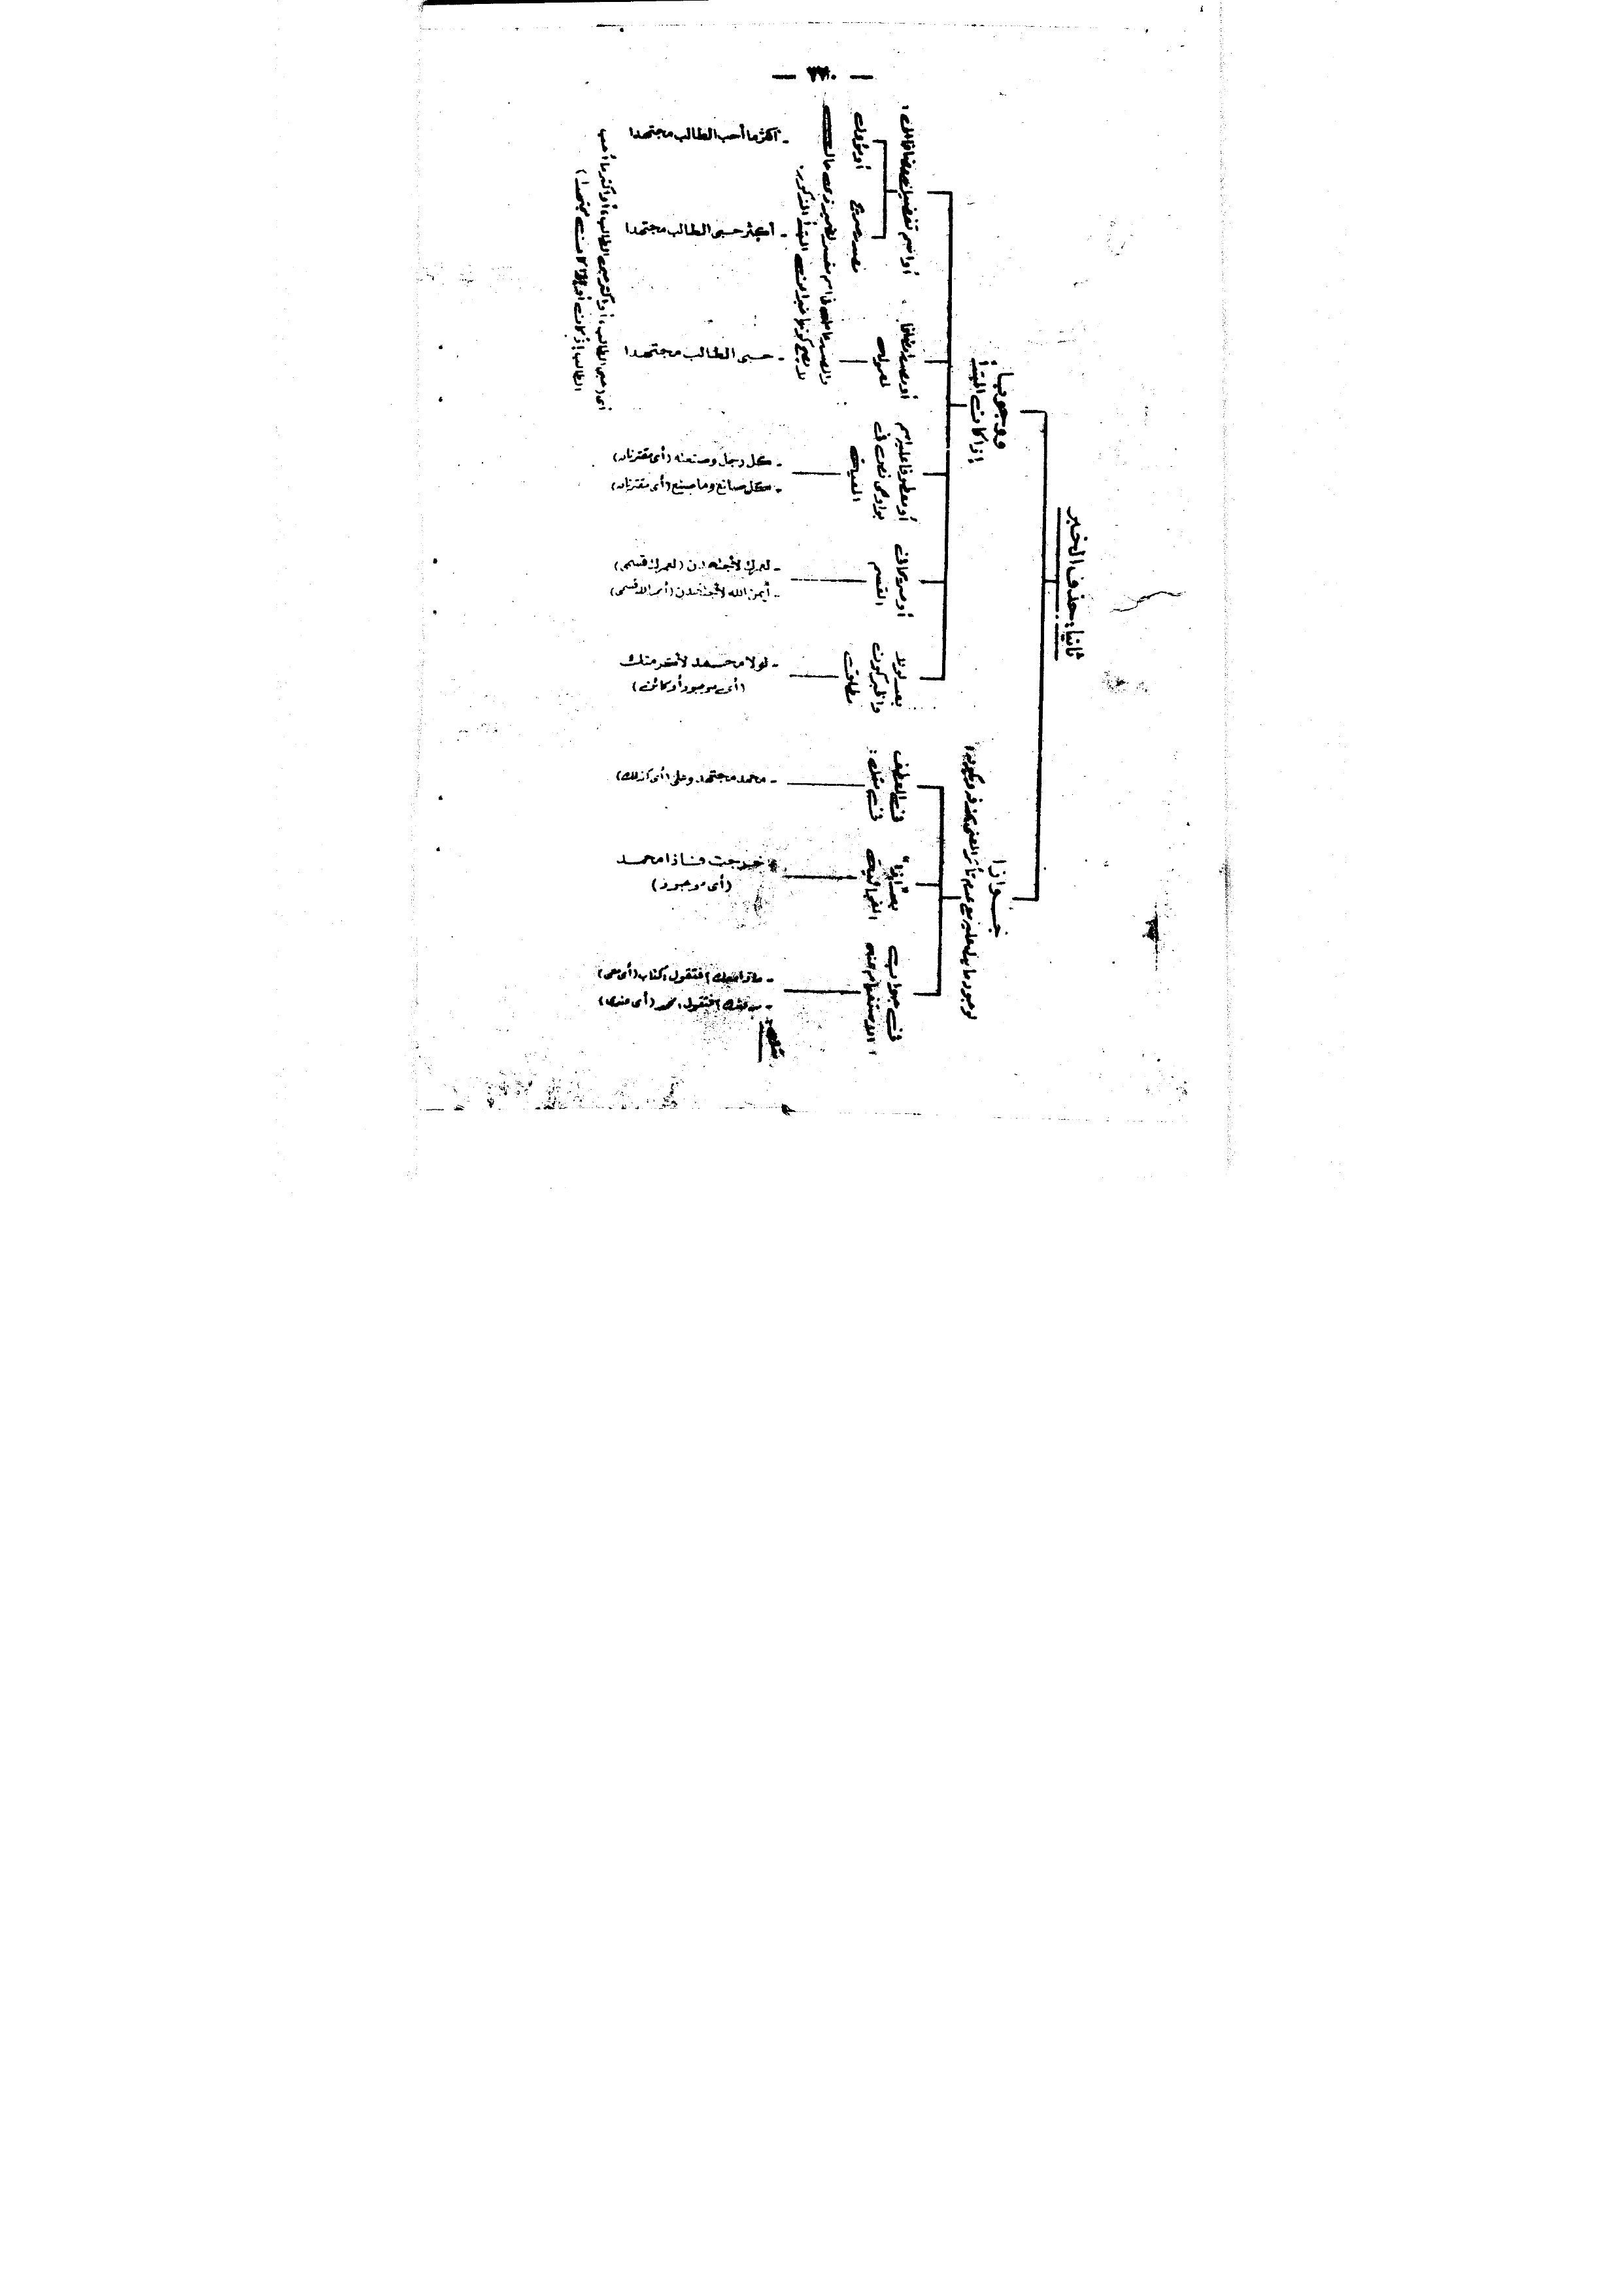 — ٢٢٠ —
ثانيا : حذف الخبر
جوازا
لوجود ما يدل عليه مع عدم تأثر المعنى بحذفه ويكون :
فى جواب
الاستفهام عنه :
- ماذا معك ؟ فتقول : كتاب (أى معى)
- من عندك ؟ فتقول : محمد (أى عندى)
بعد "إذا"
الفجائية
خرجت فإذا محمد
(أى موجود)
فى العطف
فى مثل :
- محمد مجتهد وعلى (أى كذلك)
ووجوبا :
إذا كان المبتدأ
بعد لولا
والخبر كون
مطلق
- لولا محمد لأستدرمتك
(أى موجود أو كائن)
أو صريحا فى
القسم
- لعمرك لأجتهدن (لعمرك قسمى)
- أيمن الله لأجتهدن (أيمن الله قسمى)
أو معطوفا عليه اسم
بواو هى نص فى
المعية
- كل رجل وصنعته (أى مقترنان)
- كل صانع وما صنع (أى مقترنان)
أو مصدرا مضافا
لمعموله
- حبى الطالب مجتهدا
أو اسم تفضيل مضافا إلى :
مصدر صريح
أو مؤول
- أكثر حبى الطالب مجتهدا
- أكثر ما أحب الطالب مجتهدا
والمصدر عامل فى اسم مفسر لضمير ذى حال
لا يصح كونها خبرا عن المبتدأ المذكور .
أى (حبى الطالب ، أو أكثر حبى الطالب ، أو أكثر ما أحب
الطالب إذ كان أو إذا كان مجتهدا)